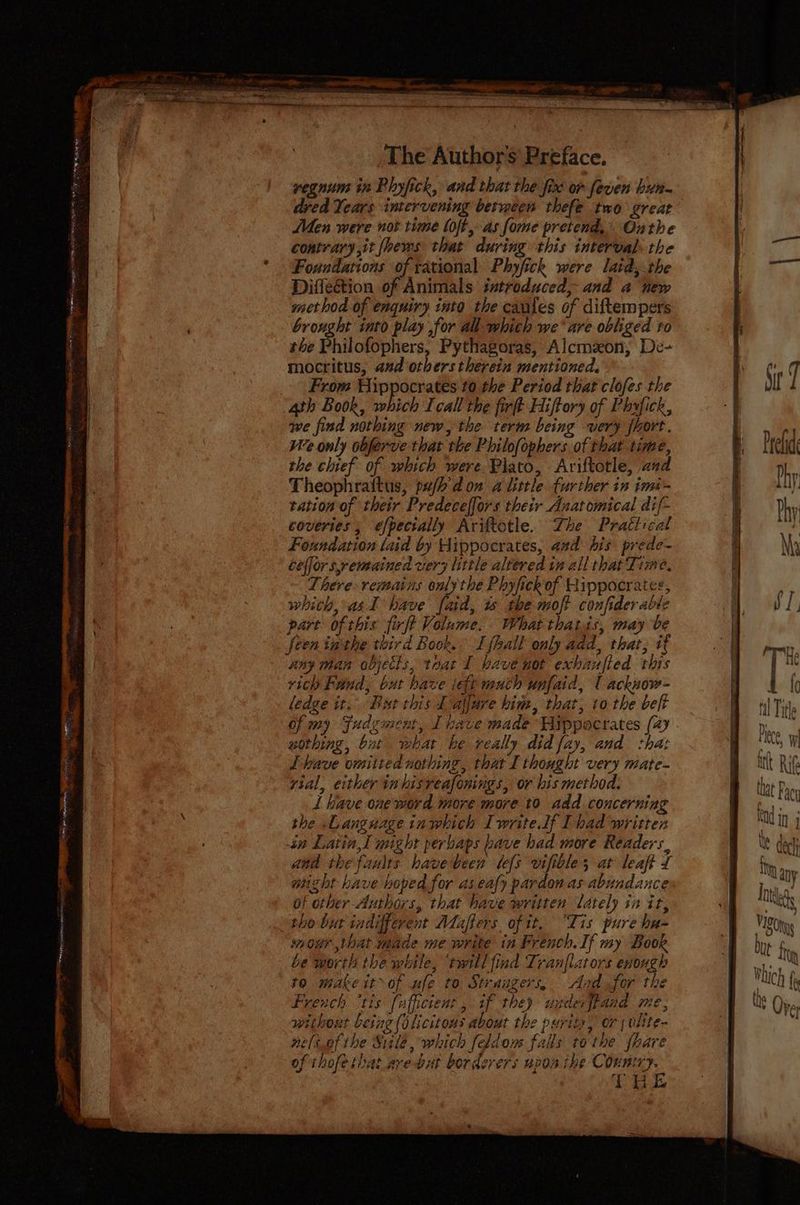 The Author's Preface.
regnum in Phyſick, and that the ſix or ſeven hun-
dred Years intervening between theſe two great
Men were not time loſt, as ſome pretend, On the
contrary, it ſhews that during this interval the
Foundations of rational Phyſick were laid, the
Diſſection of Animals introduced, and a new
method of enquiry into the cauſes of diſtempers
brought into play, for all which we are obliged to
the Philoſophers, Pythagoras, Alcmæon, De-
mocritus, and others therein mentioned.
From Hippocrates to the Period that cloſes the
4th Book, which I call the firſt Hiſtory of Phyſick,
we find nothing new, the term being very ſhort.
We only obſerve that the Philoſophers of that time,
the chief of which were Plato, Ariſtotle, and
Theophraſtus, puſh'd on a little further in imi-
tation of their Predeceſſors their Anatomical diſ-
coveries, eſpecially Ariſtotle. The Practical
Foundation laid by Hippocrates, and his prede-
ceſſors, remained very little altered in all that Time.
There remains only the Phyſick of Hippocrates,
which, as I have ſaid, is the moſt conſiderable
part of this firſt Volume. What that is, may be
ſeen in the third Book. I ſhall only add, that, if
any man objects, that I have not exhauſted this
rich Fund, but have left much unſaid, I acknow-
ledge it. But this I aſſure him, that, to the beſt
of my Judgment, I have made Hippocrates ſay
nothing, but what he really did ſay, and that
I have omitted nothing, that I thought very mate-
rial, either in his reaſonings, or his method.
I have one word more more to add concerning
the Language in which I write. If I had written
in Latin, I might perhaps have had more Readers,
and the faults have been leſs viſible; at leaſt I
might have hoped for as eaſy pardon as abundance
of other Authors, that have written lately in it,
tho but indifferent Maſters of it. 'Tis pure hu-
mour, that made me write in French. If my Book
be worth the while, 'twill find Tranſlators enough
to make it of uſe to Strangers, And for the
French 'tis ſufficient, if they underſtand me,
without being ſolicitous about the purity, or polite-
neſs of the Stile, which ſeldom falls to the ſhare
of thoſe that are but borderers upon the Country.
THE
Sir T
Phy
Phy
Ma